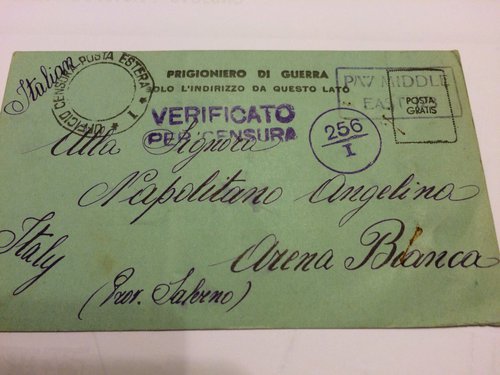 Italian
UFFICIO CENSURA POSTA ESTERA * 1 *
PRIGIONIERO DI GUERRA
SOLO L'INDIRIZZO DA QUESTO LATO
MIDDLE
EAST
POSTA
GRATIS
VERIFICATO
PER CENSURA
256
I
Alla Signora
Napolitano Angelina
Arena Bianca
Italy
(Prov. Salerno)